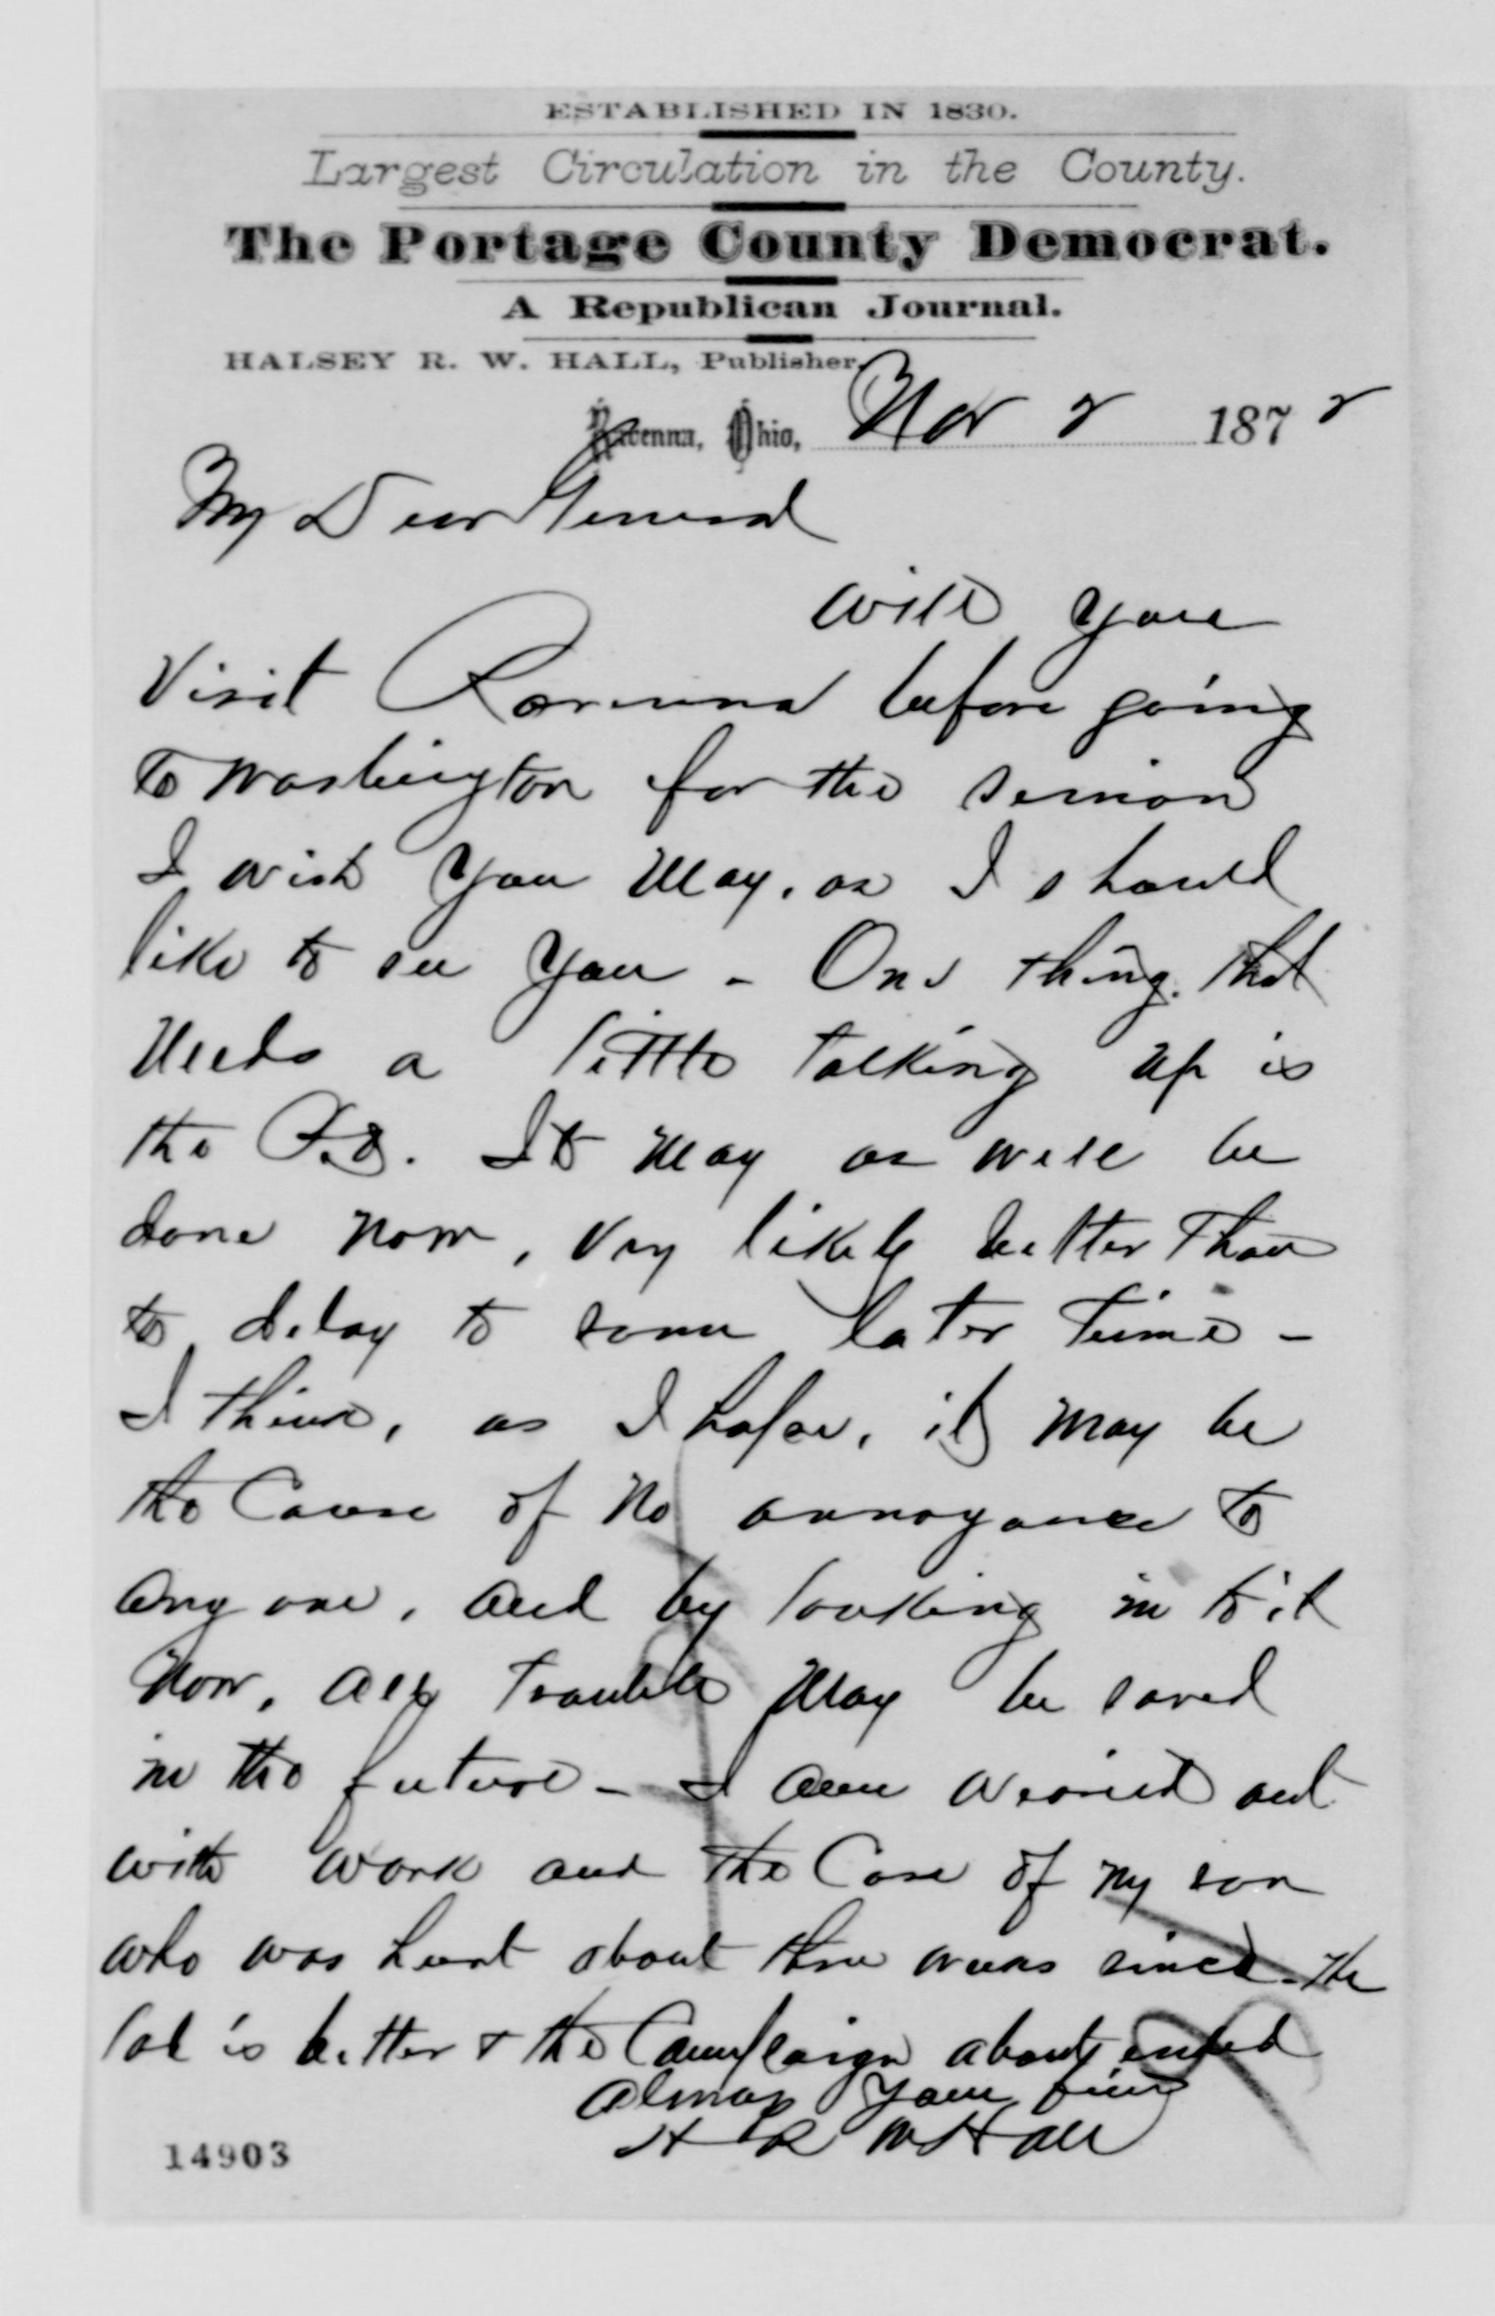 ESTABLISHED IN 1830.
Largest Circulation in the County.
The Portage County Democrat.
A Republican Journal.
HALSEY R. W. HALL, Publisher.
Ravenna, Ohio, Nov 2 1872
My Dear General
Will you
Visit Ravenna before going
to Washington for the session
I wish you may, as I should
like to see you - One thing that
needs a little talking up is
the P.O. It may as well be
done now, very likely better than
to delay to some later time -
I think, as I hope, it may be
the cause of no annoyance to
any one, and by looking in to it
now, all trouble may be saved
in the future - I am wearied out
with work and the care of my son
who was hurt about three weeks since - The
lad is better & the Campaign about ended
Always your friend
H R W Hall
14903